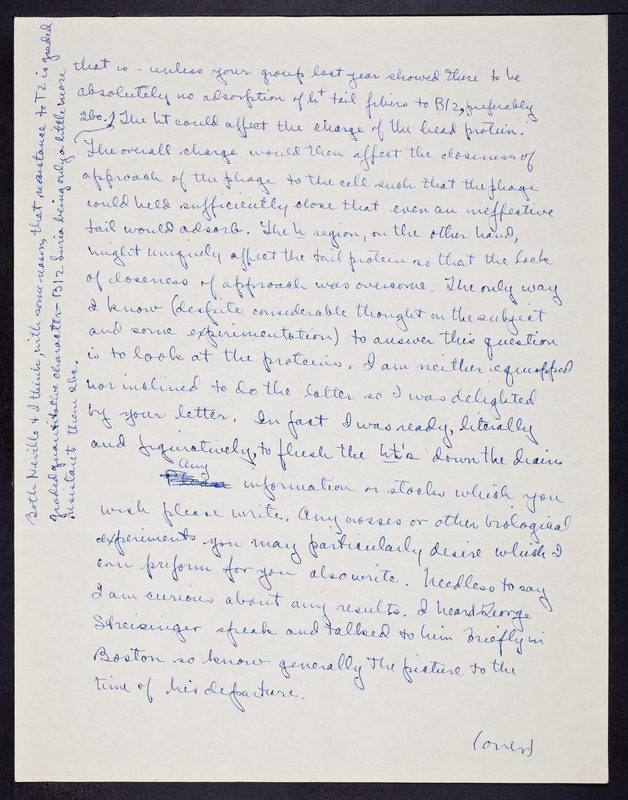 that is - unless your group last year showed there to be
absolutely no adsorption of h+ tail fibers to B/2, preferably
2bc.) The ht could affect the charge of the head protein.
The overall charge would then affect the closeness of
approach of the phage to the cell such that the phage
could held sufficiently close that even an ineffective
tail would adsorb. The h region, on the other hand,
might uniquely affect the tail protein so that the lack
of closeness of approach was overcome. The only way
I know (despite considerable thought on the subject
and some experimentation) to answer this question
is to look at the proteins. I am neither equipped
nor inclined to do the latter so I was delighted
by your letter. In fact I was ready, literally
and figuratively, to flush the ht's down the drain.
Any information or stocks which you
wish please write. Any crosses or other biological
experiments you may particularly desire which I
can preform for you also write. Needless to say
I am curious about any results. I heard George
Streisinger speak and talked to him briefly in
Boston so know generally the picture to the
time of his departure.
(over)
Both Neville & I think, with some reason, that resistance to T2 is graded
graded quantitative character B/2 buria being only a little more
resistant them abc.